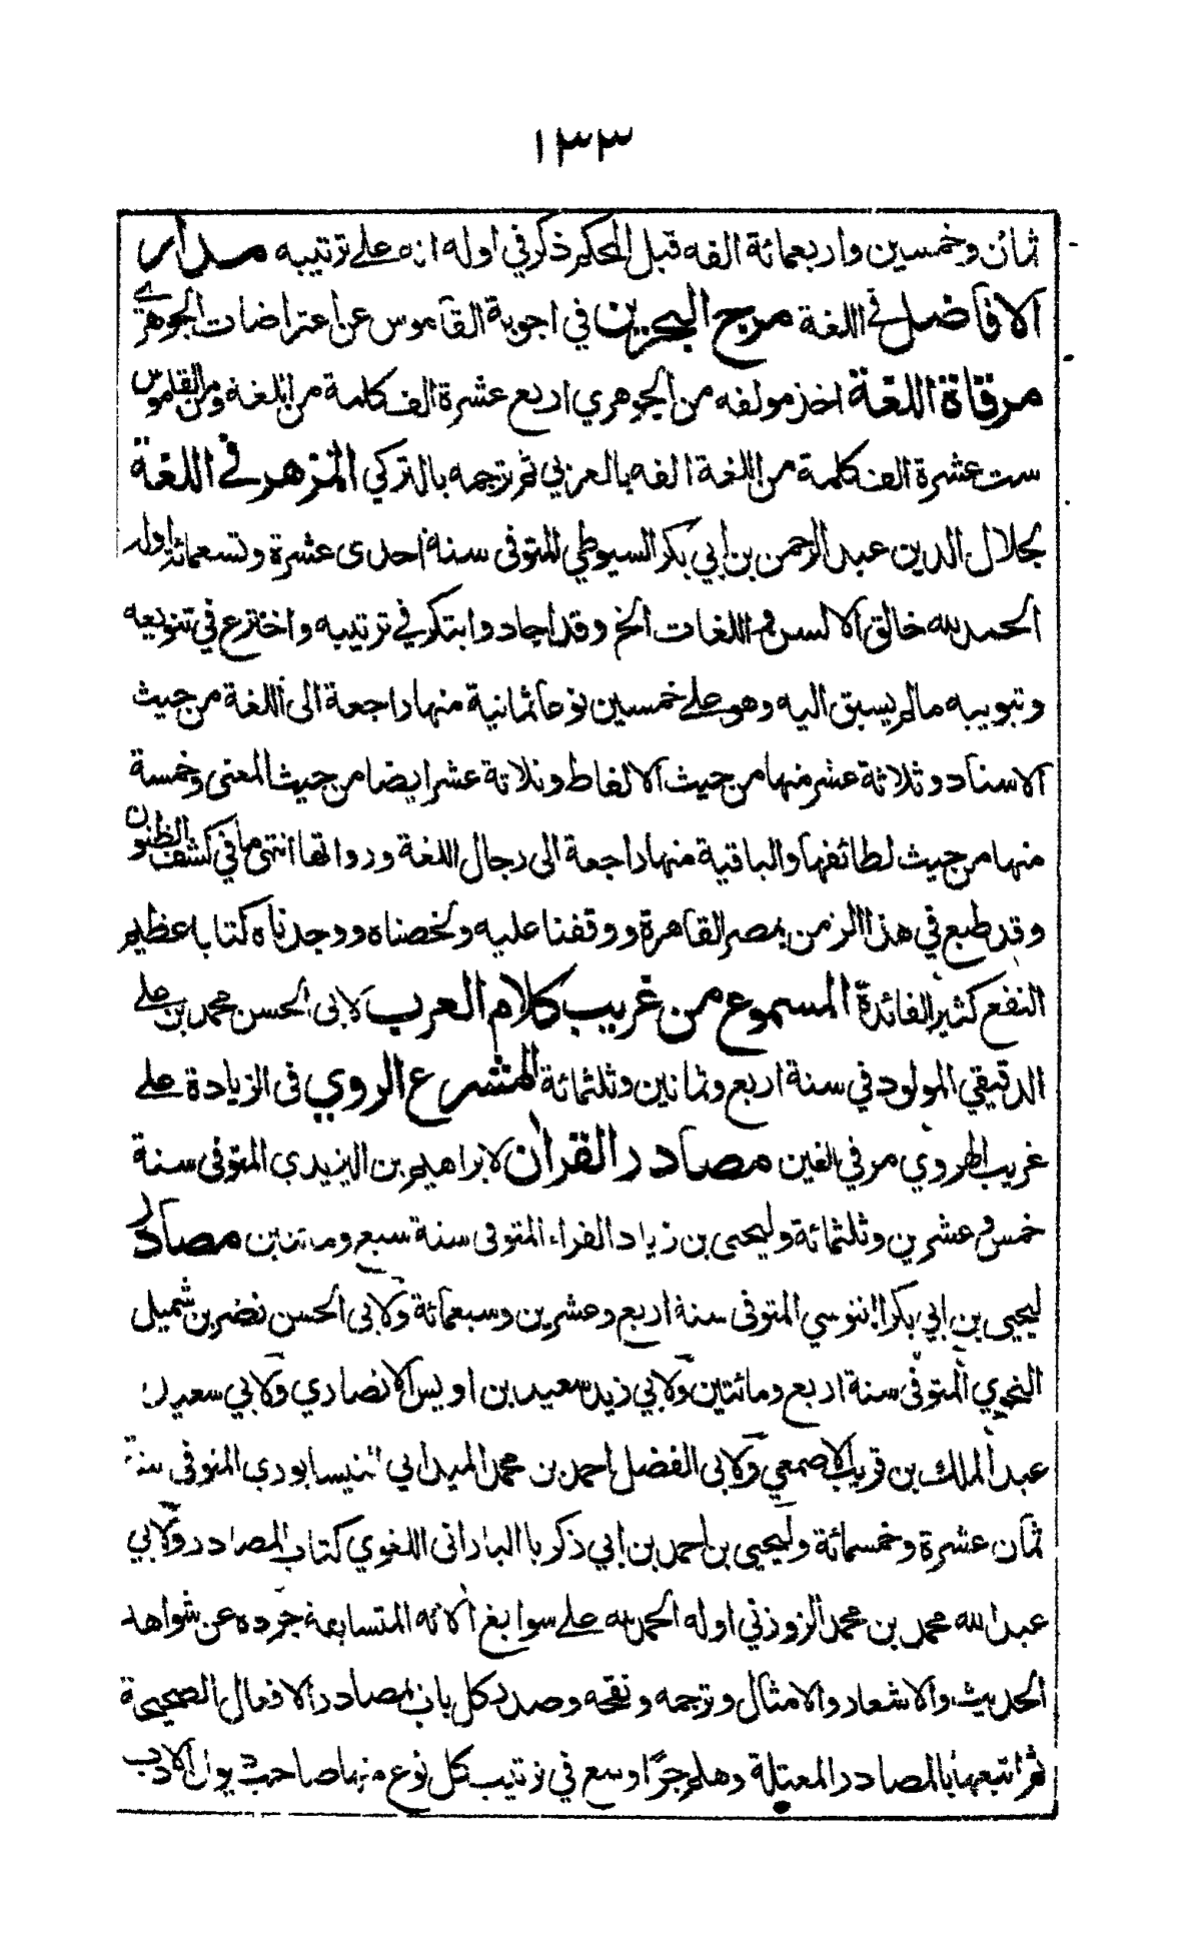 ١٣٣
ثمان وخمسين واربعمائة الفه قبل المحكم ذكر في اوله انه على ترتيبه مدار
الافاضل في اللغة مرج البحرين في اجوبة القاموس عن اعتراضات الجوهري
مرقاة اللغة اخذ مولفه من الجوهري اربع عشرة الف كلمة من اللغة ومن القاموس
ست عشرة الف كلمة من اللغة الفه بالعربي ثم ترجمه بالتركي المزهر في اللغة
لجلال الدين عبد الرحمن بن ابي بكر السيوطي المتوفى سنة احدى عشرة وتسعمائة اوله
الحمد لله خالق الالسن واللغات الخ وقد اجاد وابتكر في ترتيبه واخترع في تنويعه
وتبويبه مالم يسبق اليه وهو على خمسين نوعا ثمانية منها راجعة الى اللغة من حيث
الاسناد وثلاثة عشر منها من حيث الالفاظ وثلاثة عشر ايضا من حيث المعنى وخمسة
منها من حيث لطائفها والباقية منها راجعة الى رجال اللغة ورواتها انتهى ما في كشف الظنون
وقد طبع في هذا الزمن بمصر القاهرة ووقفنا عليه ولخصناه ووجدناه كتابا عظيم
النفع كثير الفائدة المسموع من غريب كلام العرب لابى الحسن محمد بن علي
الدقيقي المولود في سنة اربع وثمانين وثلثمائة المشرع الروي فى الزيادة على
غريب الهروي مر في الغين مصادر القران لابراهيم بن اليزيدي المتوفى سنة
خمس وعشرين وثلثمائة وليحيى بن زياد الفراء المتوفى سنة سبع ومائتين مصادر
ليحيى بن ابي بكر التنوسي المتوفى سنة اربع وعشرين وسبعمائة ولابى الحسن نضر بن شميل
النحوي المتوفى سنة اربع ومائتين ولابي زيد سعيد بن اويس الانصاري ولابي سعيد
عبد الملك بن قريب الاصمعي ولابى الفضل احمد بن محمد الميداني النيسابوري المتوفى سنة
ثمان عشرة وخمسمائة وليحيى بن احمد بن ابي ذكريا البارانى اللغوي كتاب المصادر ولابي
عبد الله محمد بن محمد الزوزني اوله الحمد لله على سوابغ الائه المتسابغة جرده عن شواهد
الحديث والاشعار والامثال وترجمه ونقحه وصدر كل باب بمصادر الافعال الصحيحة
ثم اتبعها بالمصادر المعتلة وهلم جرّا وسع في ترتيب كل نوع منها صاحب ديوان الادب